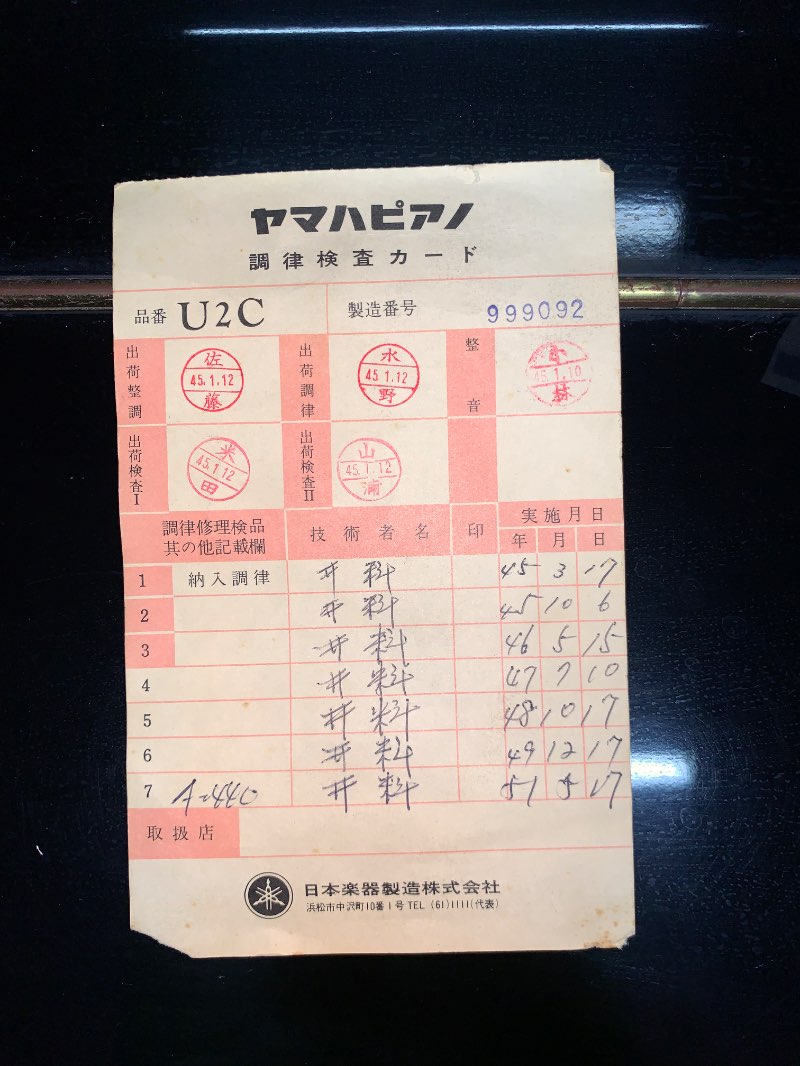 ヤマハピアノ
調律検査カード
品番 U2C 製造番号 999092
出荷整調 佐藤 45.1.12 出荷調律 水野 45.1.12 整音 小林 45.1.10
出荷検査I 米田 45.1.12 出荷検査II 山浦 45.1.12
調律修理検品其の他記載欄 技術者名 印 実施月日
年 月 日
1 納入調律 井 料 45 3 17
2 井 料 45 10 6
3 井 料 46 5 15
4 井 料 47 7 10
5 井 料 48 10 17
6 井 料 49 12 17
7 A=440 井 料 51 5 17
取扱店
日本楽器製造株式会社
浜松市中沢町10番1号 TEL (61)1111(代表)